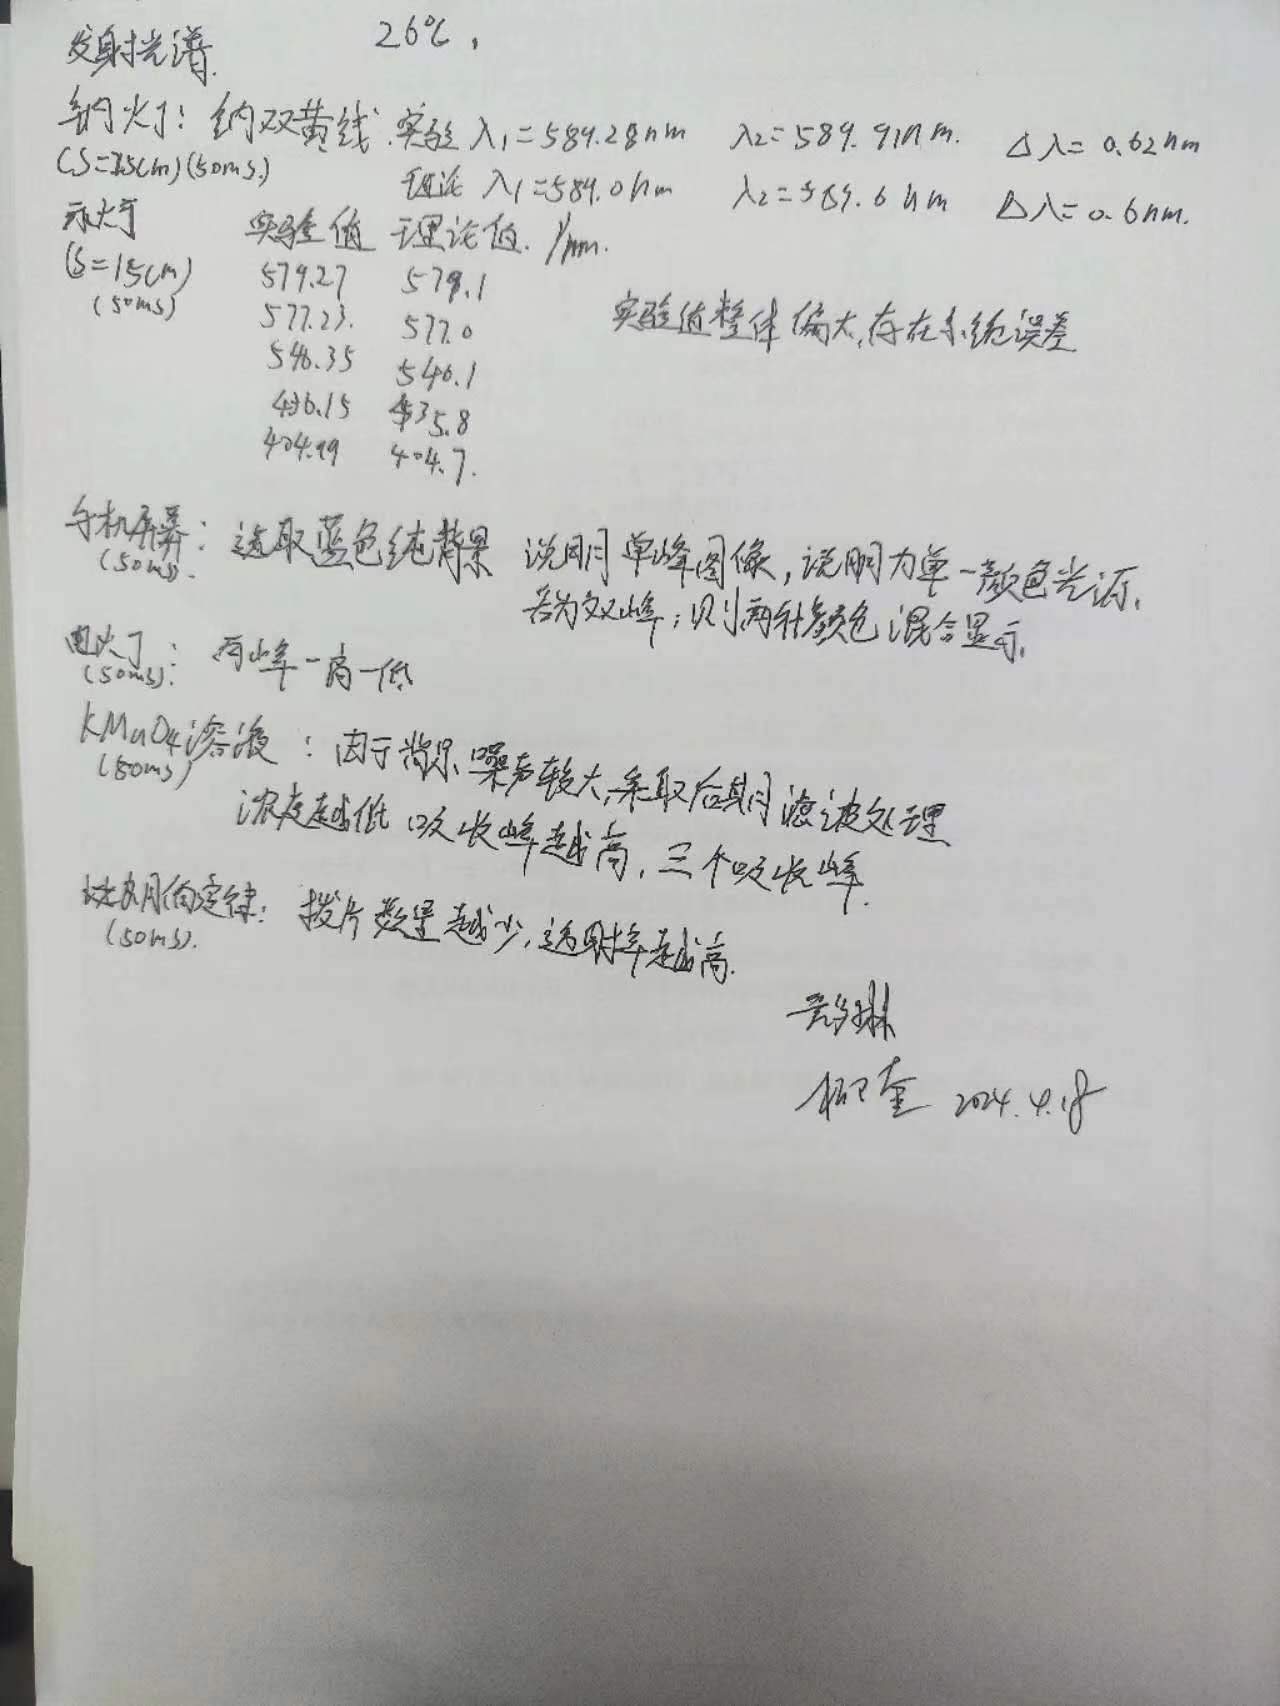 发射光谱. 26℃,
钠灯: 钠双黄线. 实验 λ1=589.28nm λ2=589.91nm. Δλ=0.62nm
(50ms) 理论 λ1=589.0nm λ2=589.6nm Δλ=0.6nm.
汞灯 实验值 理论值. /nm.
(S=15cm) 579.27 579.1
(50ms) 577.23. 577.0
实验值整体偏大,存在系统误差
546.35 546.1
436.15 435.8
404.99 404.7.
手机屏幕: 选取蓝色纯背景 说明单峰图像,说明为单一颜色光源.
(50ms). 若为双峰;则两种颜色混合显示.
电灯: 两峰一高一低
(50ms).
KMnO4溶液: 由于背景噪声较大,采取后期滤波处理
(50ms)
浓度越低 吸收峰越高,三个吸收峰.
比尔朗伯定律: 拨片数量越少,透射率越高.
(50ms).
2024.4.18